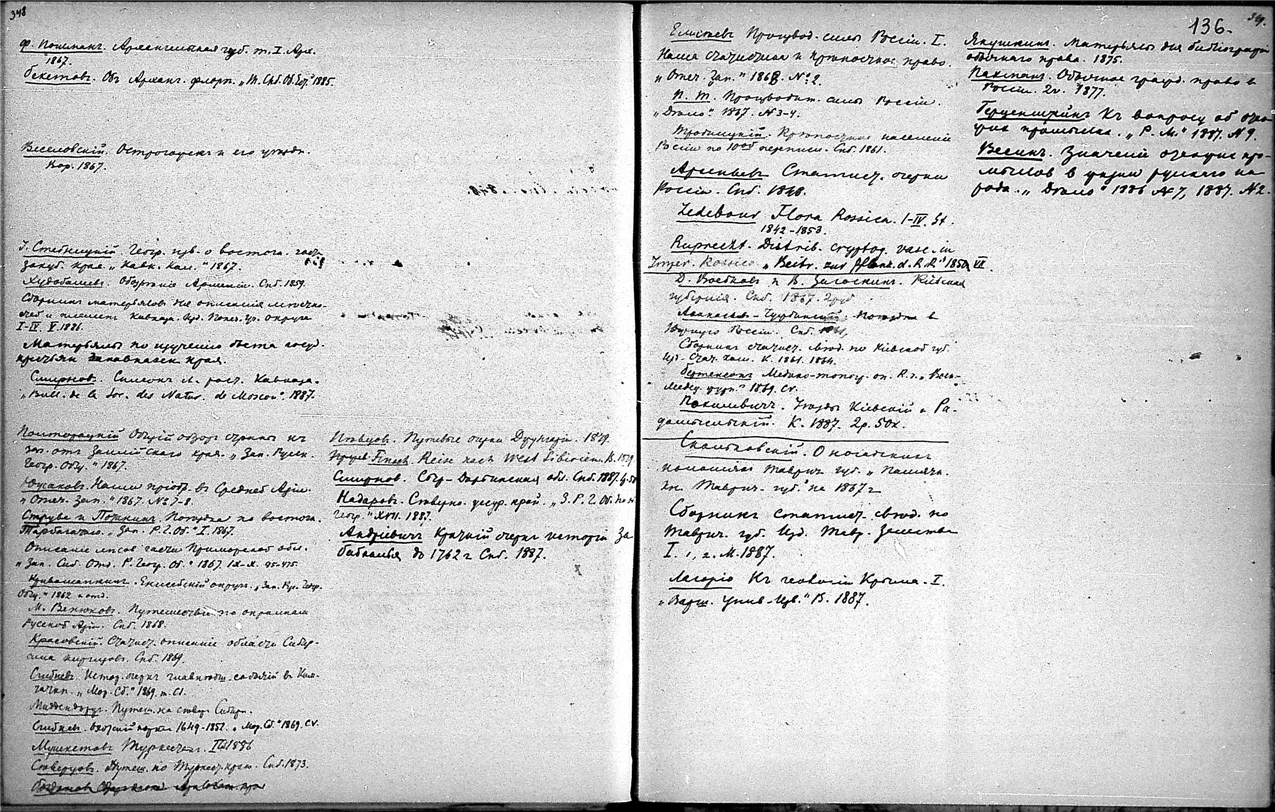 348
ф. Пошманъ. Архангельская губ. т. I. Арх.
1867.
Бекетовъ. Объ Арханг. флорѣ. 1885.
Веселовскій. Острогожскъ и его уѣздъ.
Вор. 1867.
I. Стебницкій. Геогр. о восточ.
закуб. края. „Кавк. Кал." 1867.
Худобашевъ. Обозрѣніе Арменіи. Спб. 1859.
Сборникъ матерьяловъ для описанія мѣстно-
стей и племенъ Кавказа. Изд. округа
I-IV. V. 1886.
Матерьялы по изученію быта госуд.
крестьян закавказск. края.
Смирновъ. Списокъ раст. Кавказа.
„Bull. de la Soc. des Natur. de Moscou". 1887.
Полторацкій Общій обзоръ страны къ
зап. отъ Заилійскаго края. „Зап. Русск.
Геогр. Общ." 1867.
Южаковъ. Наши пріобр. въ Средней Азіи.
„Отеч. Зап." 1867. № 7-8.
Струве и Потнинъ. Поѣздка по восточ.
Тарбагатаю. „Зап. Р. Г. Об." I. 1867.
Описаніе лѣсовъ части Приморской обл.
„Зап. Сиб. Отд. Р. Геогр. Об." 1867. IX-X. 95-475.
Кривошапкинъ. Енисейскій округъ. „Зап. Рус. Геогр.
Общ." 1862 и отд.
М. Венюковъ. Путешествіе по окраинамъ
Русской Азіи. Спб. 1868.
Красовскій. Статист. описаніе области Сибир-
скихъ киргизовъ. Спб. 1869.
Сгибневъ. Истор. очеркъ главнѣйш. событій въ Кам-
чаткѣ. „Мор. Сб." 1869. т. CI.
Миддендорфъ. Путеш. на сѣвер. Сибири.
Сгибневъ. 1649-1852. „Мор. Сб." 1869. CV.
Мушкетовъ Туркестанъ. 1886
Сѣверцовъ. Путеш. по Туркест. краю. Спб. 1873.
Пѣвцовъ. Путевые очерки Джунгаріи. 1879.
Finsch. Reise nach West Sibirien. B. 1879
Смирнов. Сыр-Дарьинская обл. Спб. 1887.
Надаровъ. Сѣверно-уссур. край. „З. Р. Г. Об. по
геогр." XVII. 1887.
Андріевичъ Краткій очеркъ исторіи За-
байкалья до 1762 г Спб. 1887.
136.
349.
Елисѣевъ Производ. силы Россіи. I.
Наша статистика и крѣпостное право.
„Отеч. Зап." 1868. № 2.
П. Т. Производит. силы Россіи.
„Дѣло." 1867. № 3-4.
Тройницкій. Крѣпостное населеніе
Россіи по 10ой переписи. Спб. 1861.
Арсеньевъ Статист. очерки
Россіи. Спб. 1848.
Ledebour Flora Rossica. I-IV. St.
1842-1853.
Ruprecht. Distrib. cryptog. vasc. in
Imper. Rossico. „Beitr. zur Pflanz. d. R. R."
и В. Загоскинъ. Кіевская
губернія. Спб. 1867.
Аѳанасьев-Чужбинскій. Поѣздка в
Южную Россію. Спб.
Сборникъ статист. свѣд. по Кіевской губ.
Изд. Стат. ком. К. 1861. 1864.
Медико-топогр. оп. К. г. „Воен-
Медиц. журн." 1869. CV.
Похилевичъ. Уѣзды Кіевскій и Ра-
домысльскій. К. 1887. 2р. 50к.
Скальковскій. О ногайскихъ
колоніяхъ Таврич. губ. „Памятн.
кн. Таврич. губ." на 1867 г
Сборникъ статист. свѣд. по
Таврич. губ. Изд. Тавр. Земства
I. 1, 2. М. 1887.
Лагоріо Къ геологіи Крыма. I.
„Варш. Унив. Изв." В. 1887.
Якушкинъ. Матерьялы для библіографіи
обычнаго права. 1875.
Пахманъ. Обычное гражд. право в
Россіи. 2 т. 1877.
Герценштейнъ Къ вопросу об отхо-
жихъ промыслахъ. „Р. М." 1887. № 9.
Весинъ. Значеніе отхожих про-
мысловъ въ жизни русскаго на-
рода. „Дѣло" 1886 № 7, 1887. № 2.